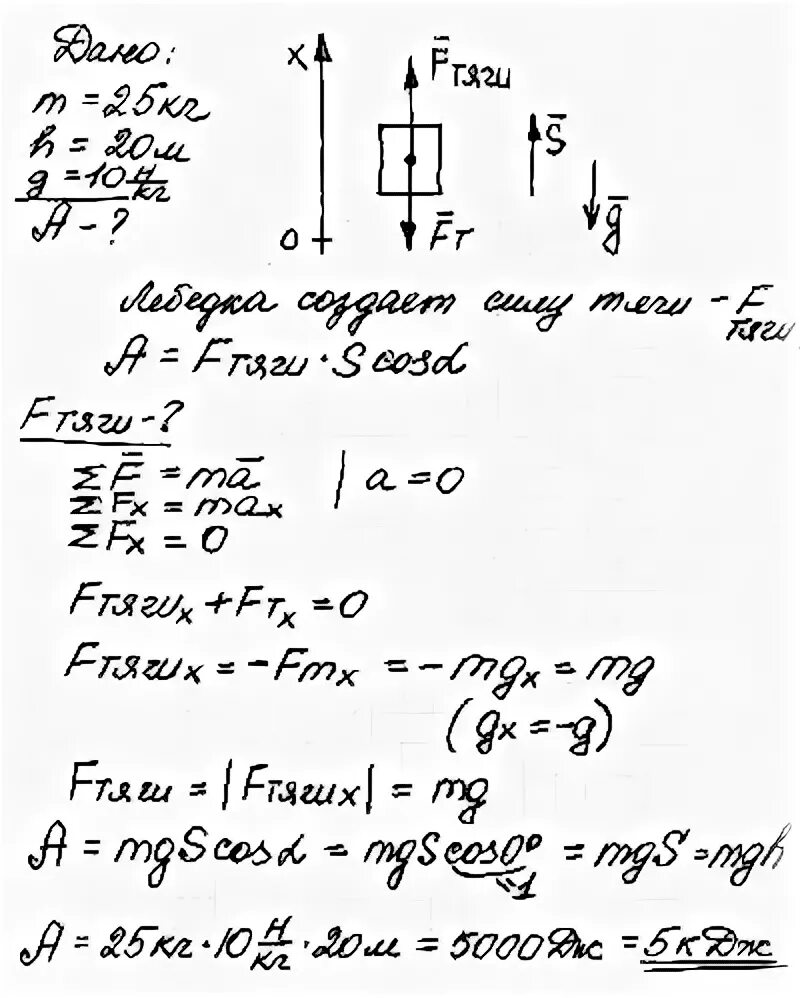 Дано:
m = 25кг
h = 20м
g = 10 Н/кг
A - ?
x
0
F̅тяги
F̅т
S̅
g̅
Лебедка создает силу тяги - Fтяги
A = Fтяги · S cosα
Fтяги - ?
ΣF̅ = ma̅ | a = 0
ΣFx = max
ΣFx = 0
Fтягиx + Fтx = 0
Fтягиx = -Fтx = -mgx = mg
(gx = -g)
Fтяги = |Fтягиx| = mg
A = mgS cosα = mgS cos0° = mgS = mgh
=1
A = 25кг · 10 Н/кг · 20м = 5000Дж = 5кДж